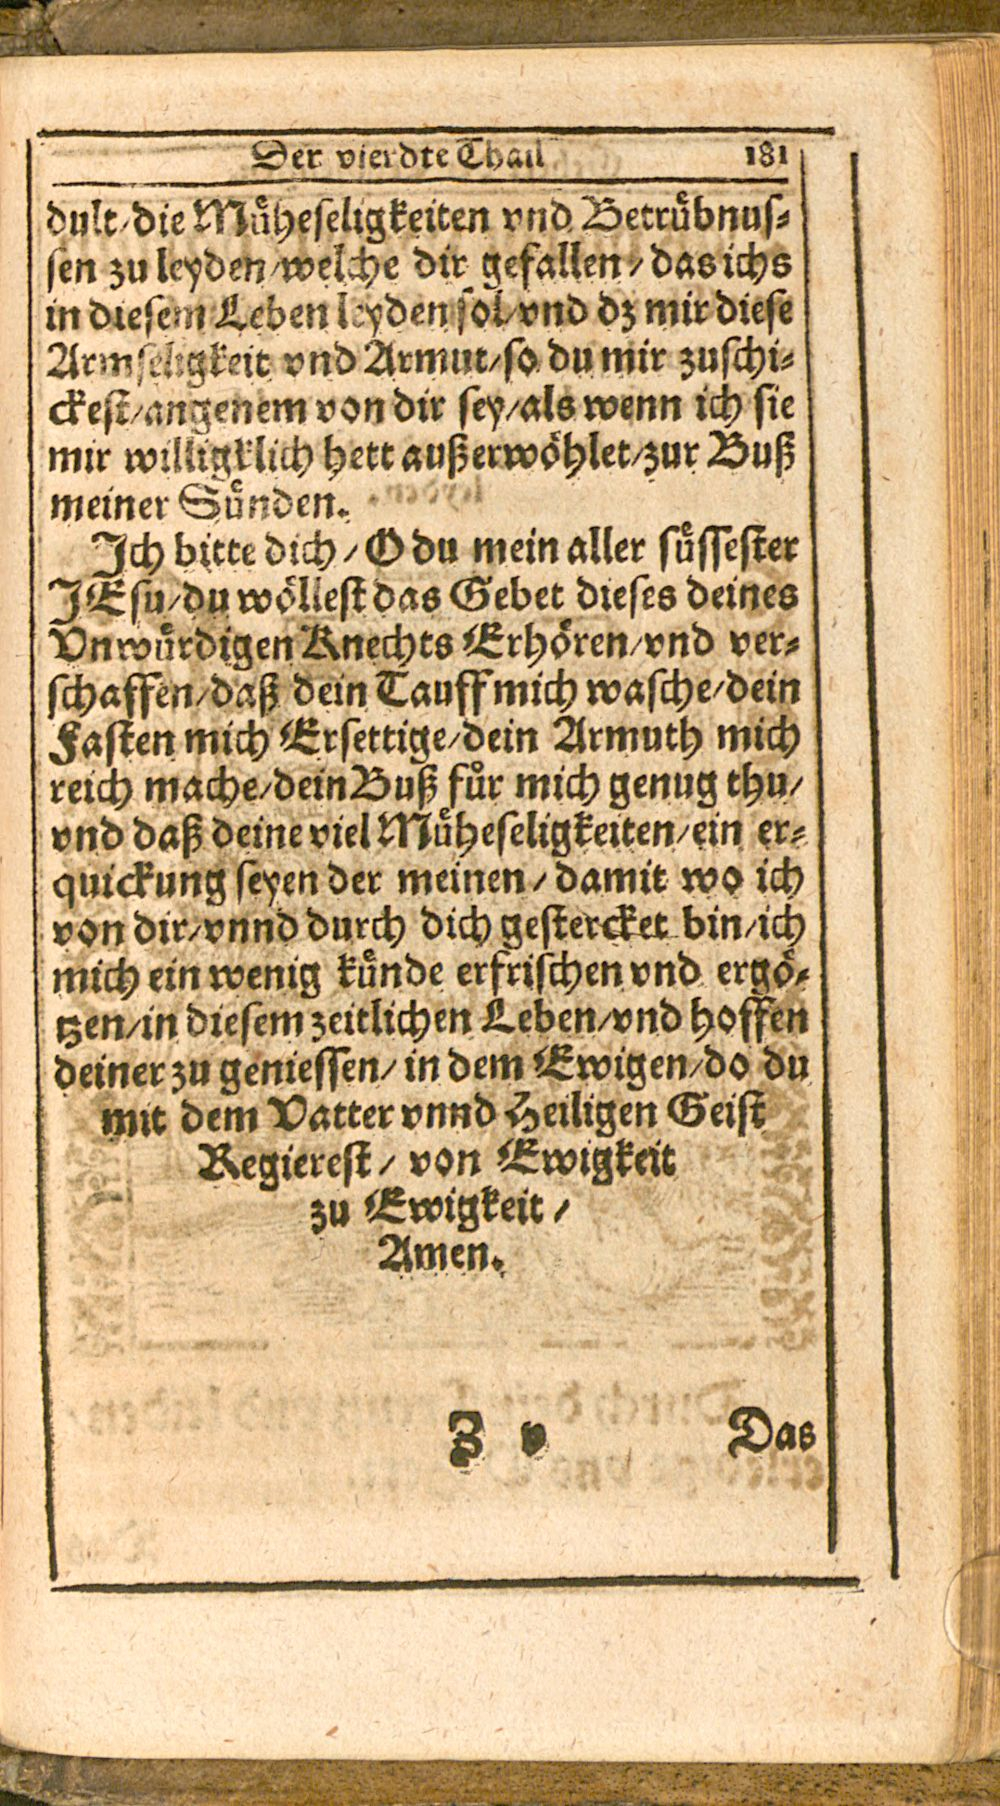 Der vierdte Thail 181
dult/die Můheseligkeiten vnd Betrůbnus-
sen zu leyden/welche dir gefallen/das ichs
in diesem Leben leyden sol/vnd dz mir diese
Armseligkeit vnd Armut/so du mir zuschi-
ckest/angenem von dir sey/als wenn ich sie
mir willigklich hett außerwöhlet/zur Buß
meiner Sůnden.
Ich bitte dich/O du mein aller sůssester
JEsu/du wöllest das Gebet dieses deines
Vnwůrdigen Knechts Erhören/vnd ver-
schaffen/daß dein Tauff mich wasche/dein
Fasten mich Ersettige/dein Armuth mich
reich mache/dein Buß fůr mich genug thu/
vnd daß deine viel Můheseligkeiten/ein er-
quickung seyen der meinen/damit wo ich
von dir/vnnd durch dich gestercket bin/ich
mich ein wenig kůnde erfrischen vnd ergö-
tzen/in diesem zeitlichen Leben/vnd hoffen
deiner zu geniessen/in dem Ewigen/do du
mit dem Vatter vnnd Heiligen Geist
Regierest/von Ewigkeit
zu Ewigkeit/
Amen.
Z v Das